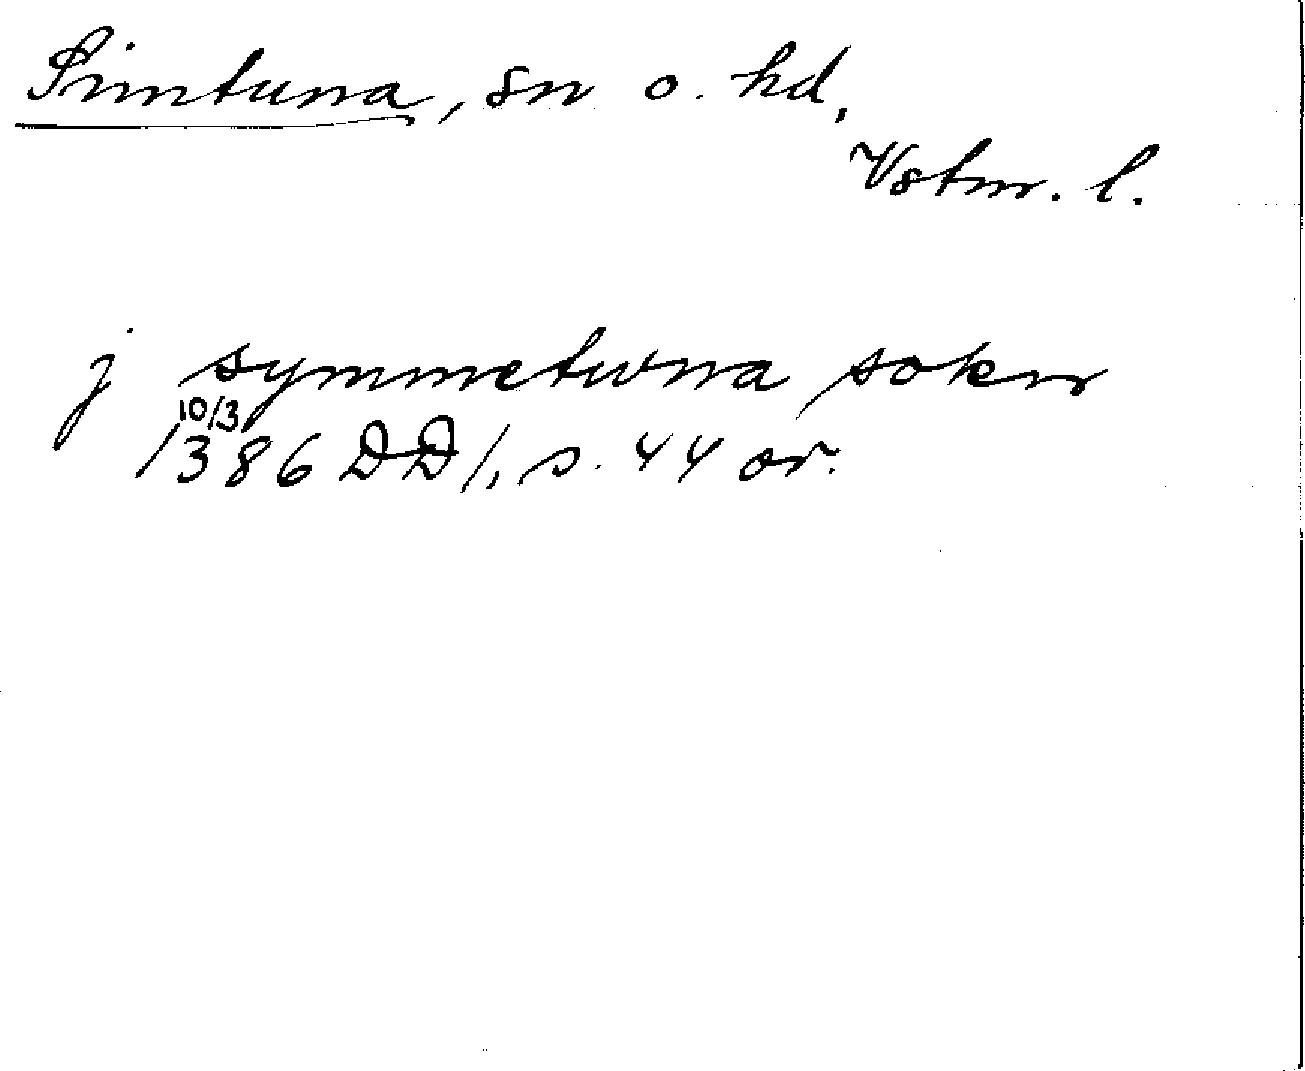 Simtuna, sn o. hd,
Vstm. l.
j symmetuna sokn
10/3
1386 DD 1, s. 44 or.